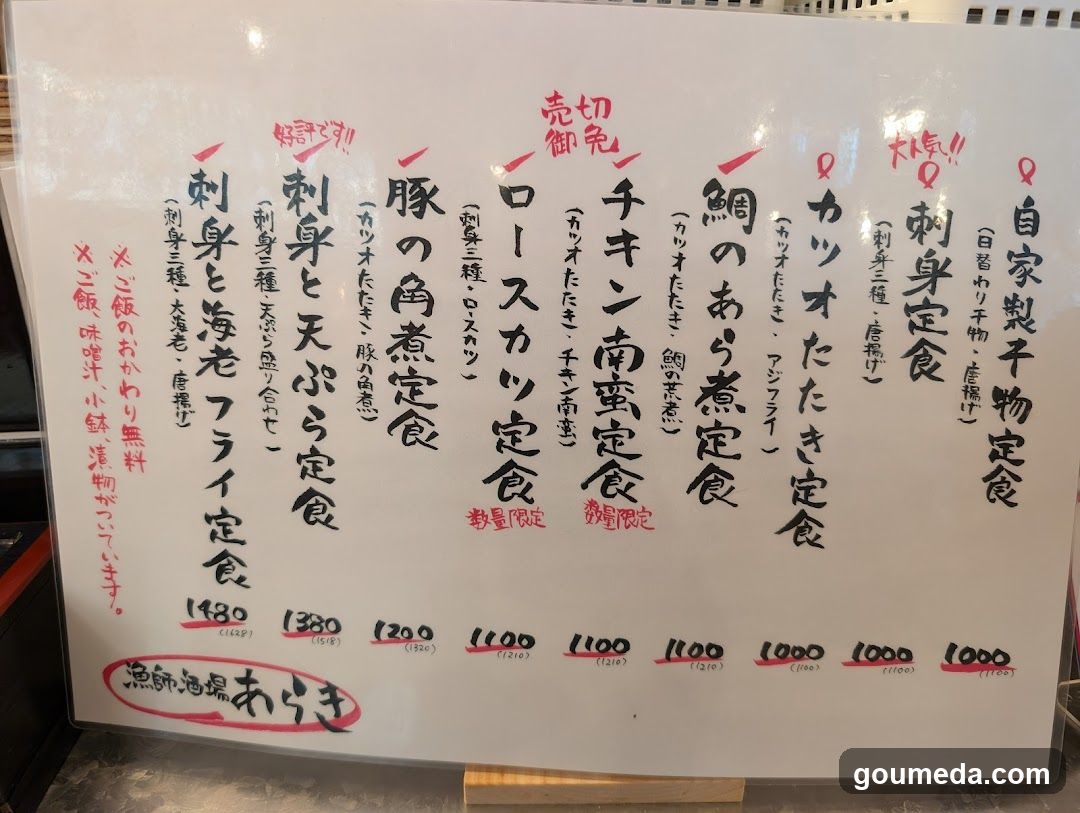 自家製干物定食
(日替わり干物・唐揚げ)
1000
(1100)
大人気!!
刺身定食
(刺身三種・唐揚げ)
1000
(1100)
カツオたたき定食
(カツオたたき・アジフライ)
1000
(1100)
鯛のあら煮定食
(カツオたたき・鯛の荒煮)
1100
(1210)
売切御免
チキン南蛮定食
(カツオたたき・チキン南蛮)
数量限定
1100
(1210)
ロースカツ定食
(刺身三種・ロースカツ)
数量限定
1100
(1210)
豚の角煮定食
(カツオたたき・豚の角煮)
1200
(1320)
好評です!!
刺身と天ぷら定食
(刺身三種・天ぷら盛り合わせ)
1380
(1518)
刺身と海老フライ定食
(刺身三種・大海老・唐揚げ)
1480
(1628)
※ご飯のおかわり無料
※ご飯、味噌汁、小鉢、漬物がついています。
漁師酒場あらき
goumeda.com